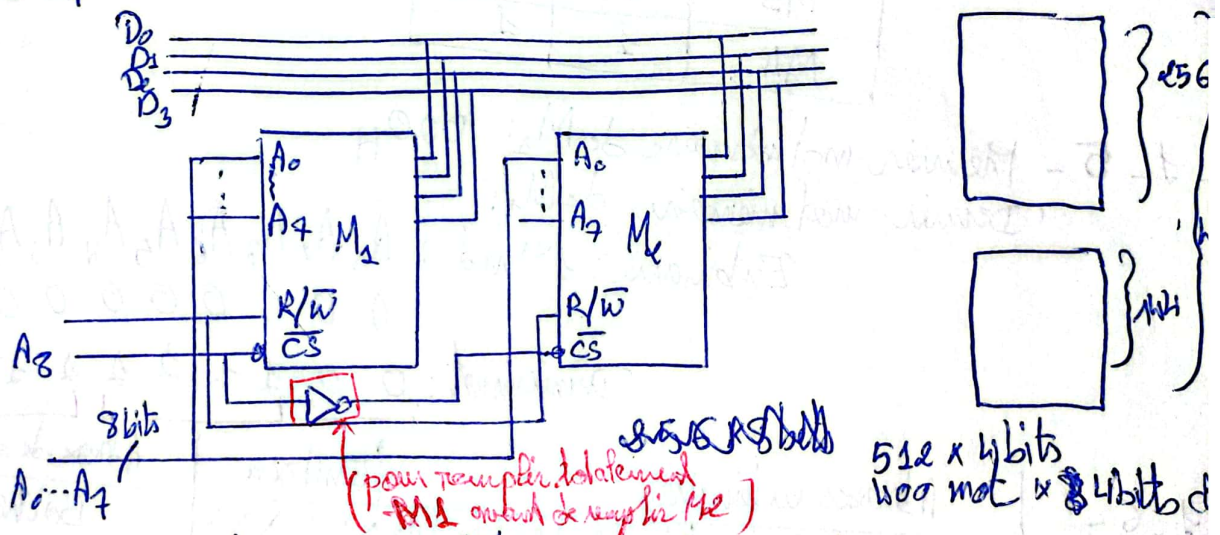 D0
D1
D2
D3
A0
A7
M1
R/W̅
C̅S̅
A0
A7
M2
R/W̅
C̅S̅
256
144
A8
8 bits
A0...A7
(pour remplir totalement
M1 avant de remplir M2)
512 x 4 bits
400 mot x 4 bits d